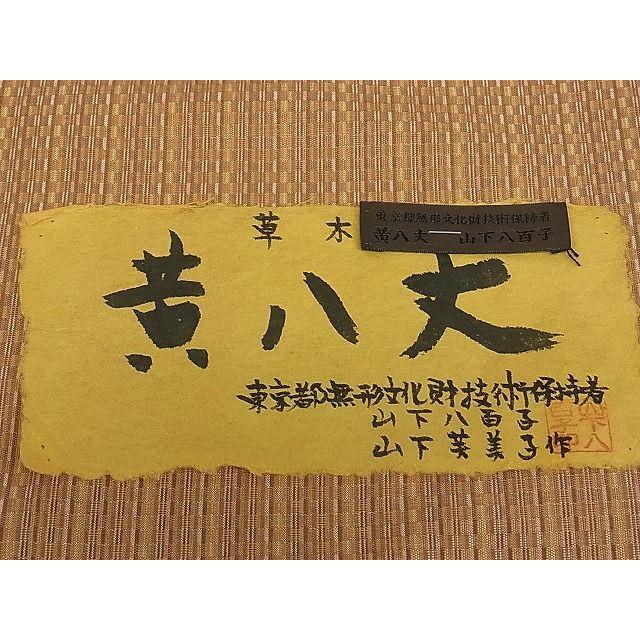 東京都無形文化財技術保持者
黄八丈 山下八百子
草木
黄八丈
東京都無形文化財技術保持者
山下八百子
山下芙美子作